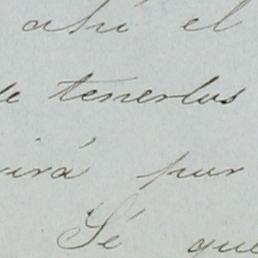 ahí el
de tenerlos
virá por
Sé que